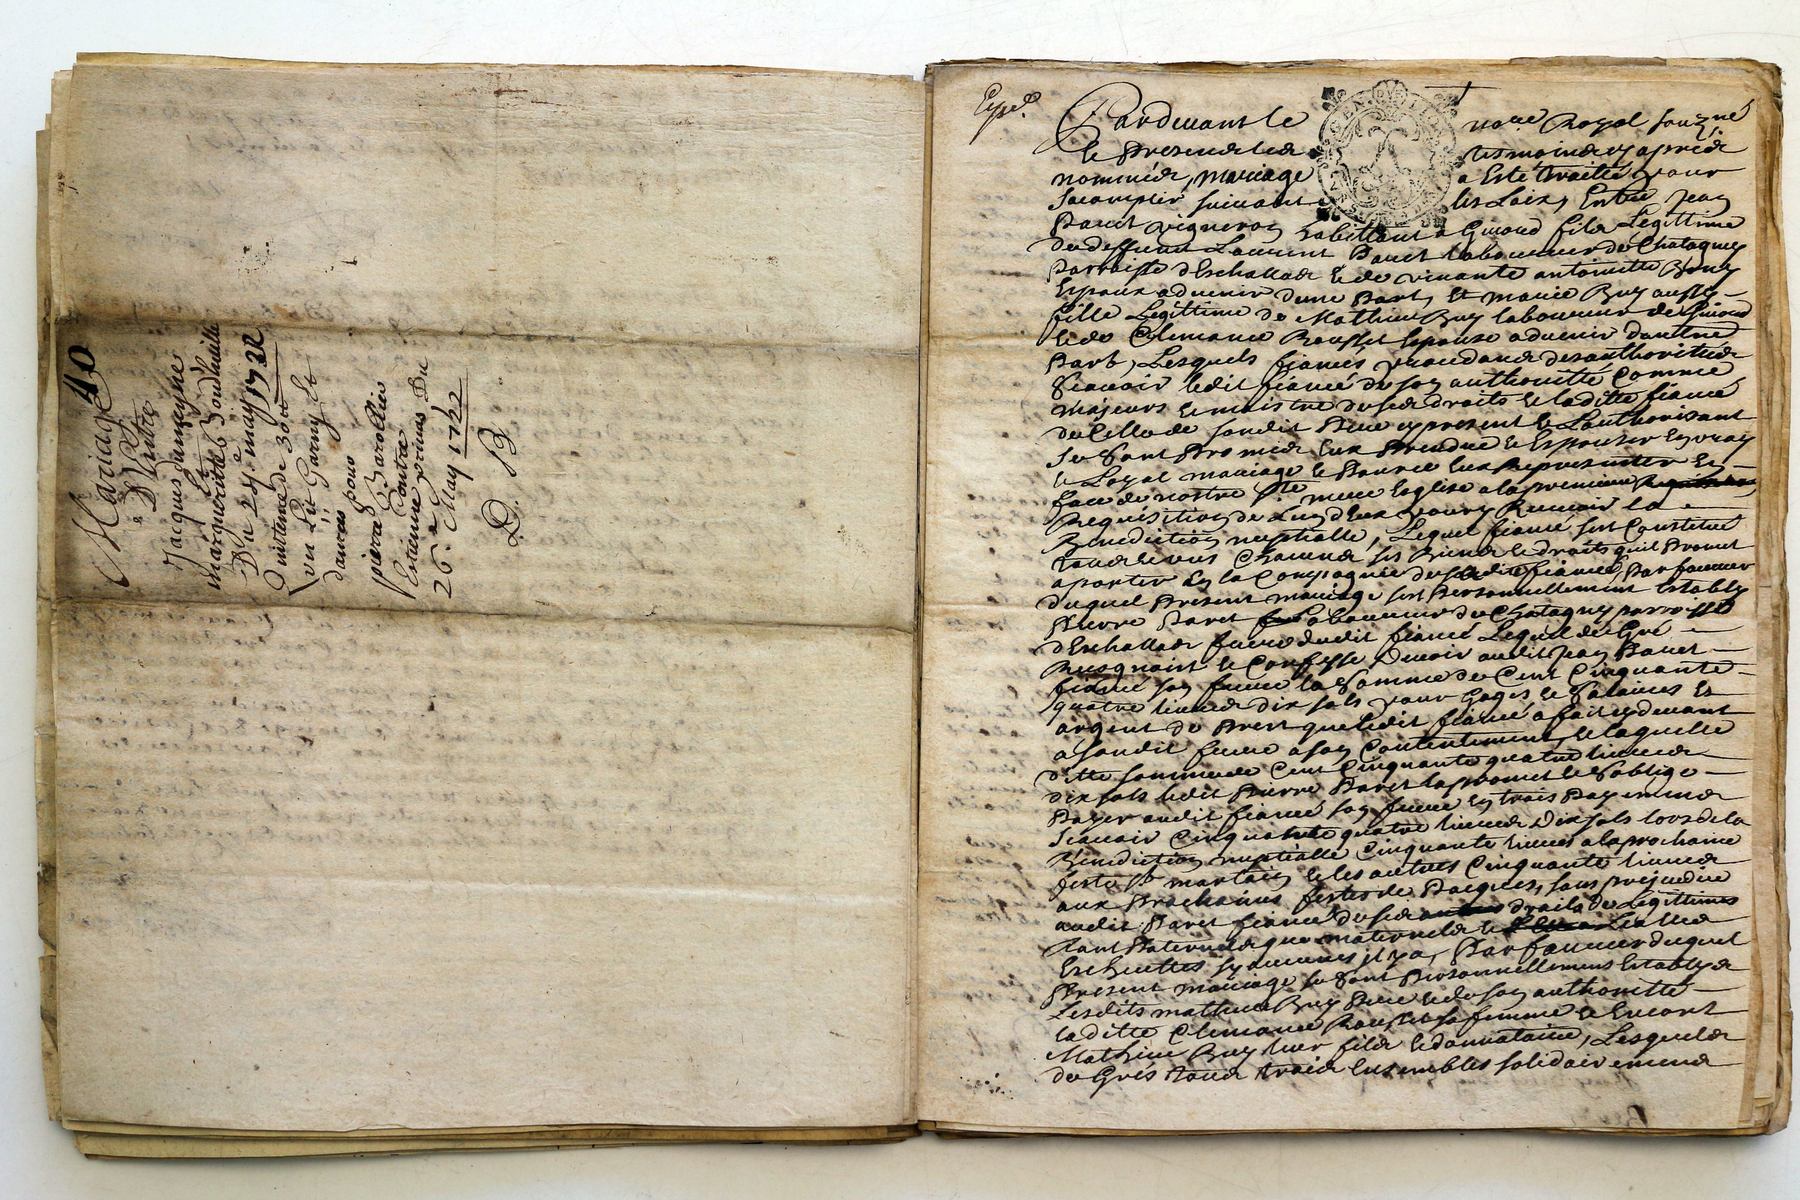 40
Mariage
D'Entre
Jacques
et
margueritte
Du 24e may 1722
Quittance de 30
lit Garny et
danrés pour
pierre Barollier
Contre
Estienne
26e May 1722
D. B
Expé.
Pardevant le noue Royal souzné
le presence des tesmoinds cy aprés
nommés, mariage a esté traitté pour
sacomplir suivant les Loix, Entre Jean
Paret vigneron habittant a Givord fils Legittime
de deffunt Laurent Paret laboureur de Chatagney
Parroisse d'Eschallas & de vivante antoinette
Espoux advenir d'une part, Et marie Buy aussy
fille Legittime de Mathieu Buy laboureur de Givord
& de Clemance Rousset Espouse advenir d'aultre
Part, Lesquels fiancés procedants des authorités
Scavoir ledit fiancé de soy authoritté Comme
majeurs & maistre de ses droits & laditte fiancée
de Celle de sondit Pere cy present & Lauthorisant
se sont Promis Eux Prendre & Espouser En vray
& Loyal mariage & Pource Eux Representer En
face de nostre Ste mere Esglise a la premiere
Requisition de Lun d'Eux pour y Recevoir la
Benediction nuptialle, Lequel fiancé sest Constitué
tous & uns Chacuns ses Biens & droits quil Promet
aporter En la Compagnie de saditte fiancée, Par faveur
duquel Present mariage sest Personnellement Estably
Pierre Paret laboureur de Chatagney parroisse
d'Eschallas frere dudit fiancé Lequel de Gré
Recognoist & Confesse Devoir audit Jean Paret
fiancé son frere la Somme de Cent Cinquante
quatre livres dix sols pour Gages & Salaires Et
argent de Prest que ledit fiancé a fait cy devant
a sondit frere a son Contentement, & laquelle
ditte somme de Cent Cinquante quatre livres
dix sols ledit Pierre Paret la promet & s'oblige
Payer audit fiancé son frere En trois Payements
Scavoir Cinquante quatre livres Dix sols lors de la
Benediction nuptialle Cinquante livres a la prochaine
feste St martain & les autres Cinquante livres
aux Prochaines festes de Pacques, sans prejudice
audit Paret fiancé de ses droits de Legittimes
tant Paternels que maternels &
Escheuttes sy aucunes il y a, Par faveur duquel
Present mariage se sont Personnellement Establys
Lesdits mathieu Buy Pere & de son authoritté
laditte Clemance Rousset sa femme & Encore
Mathieu Buy leur fils & donnataire, Lesquels
de Grés tous trois Ensembles solidairement